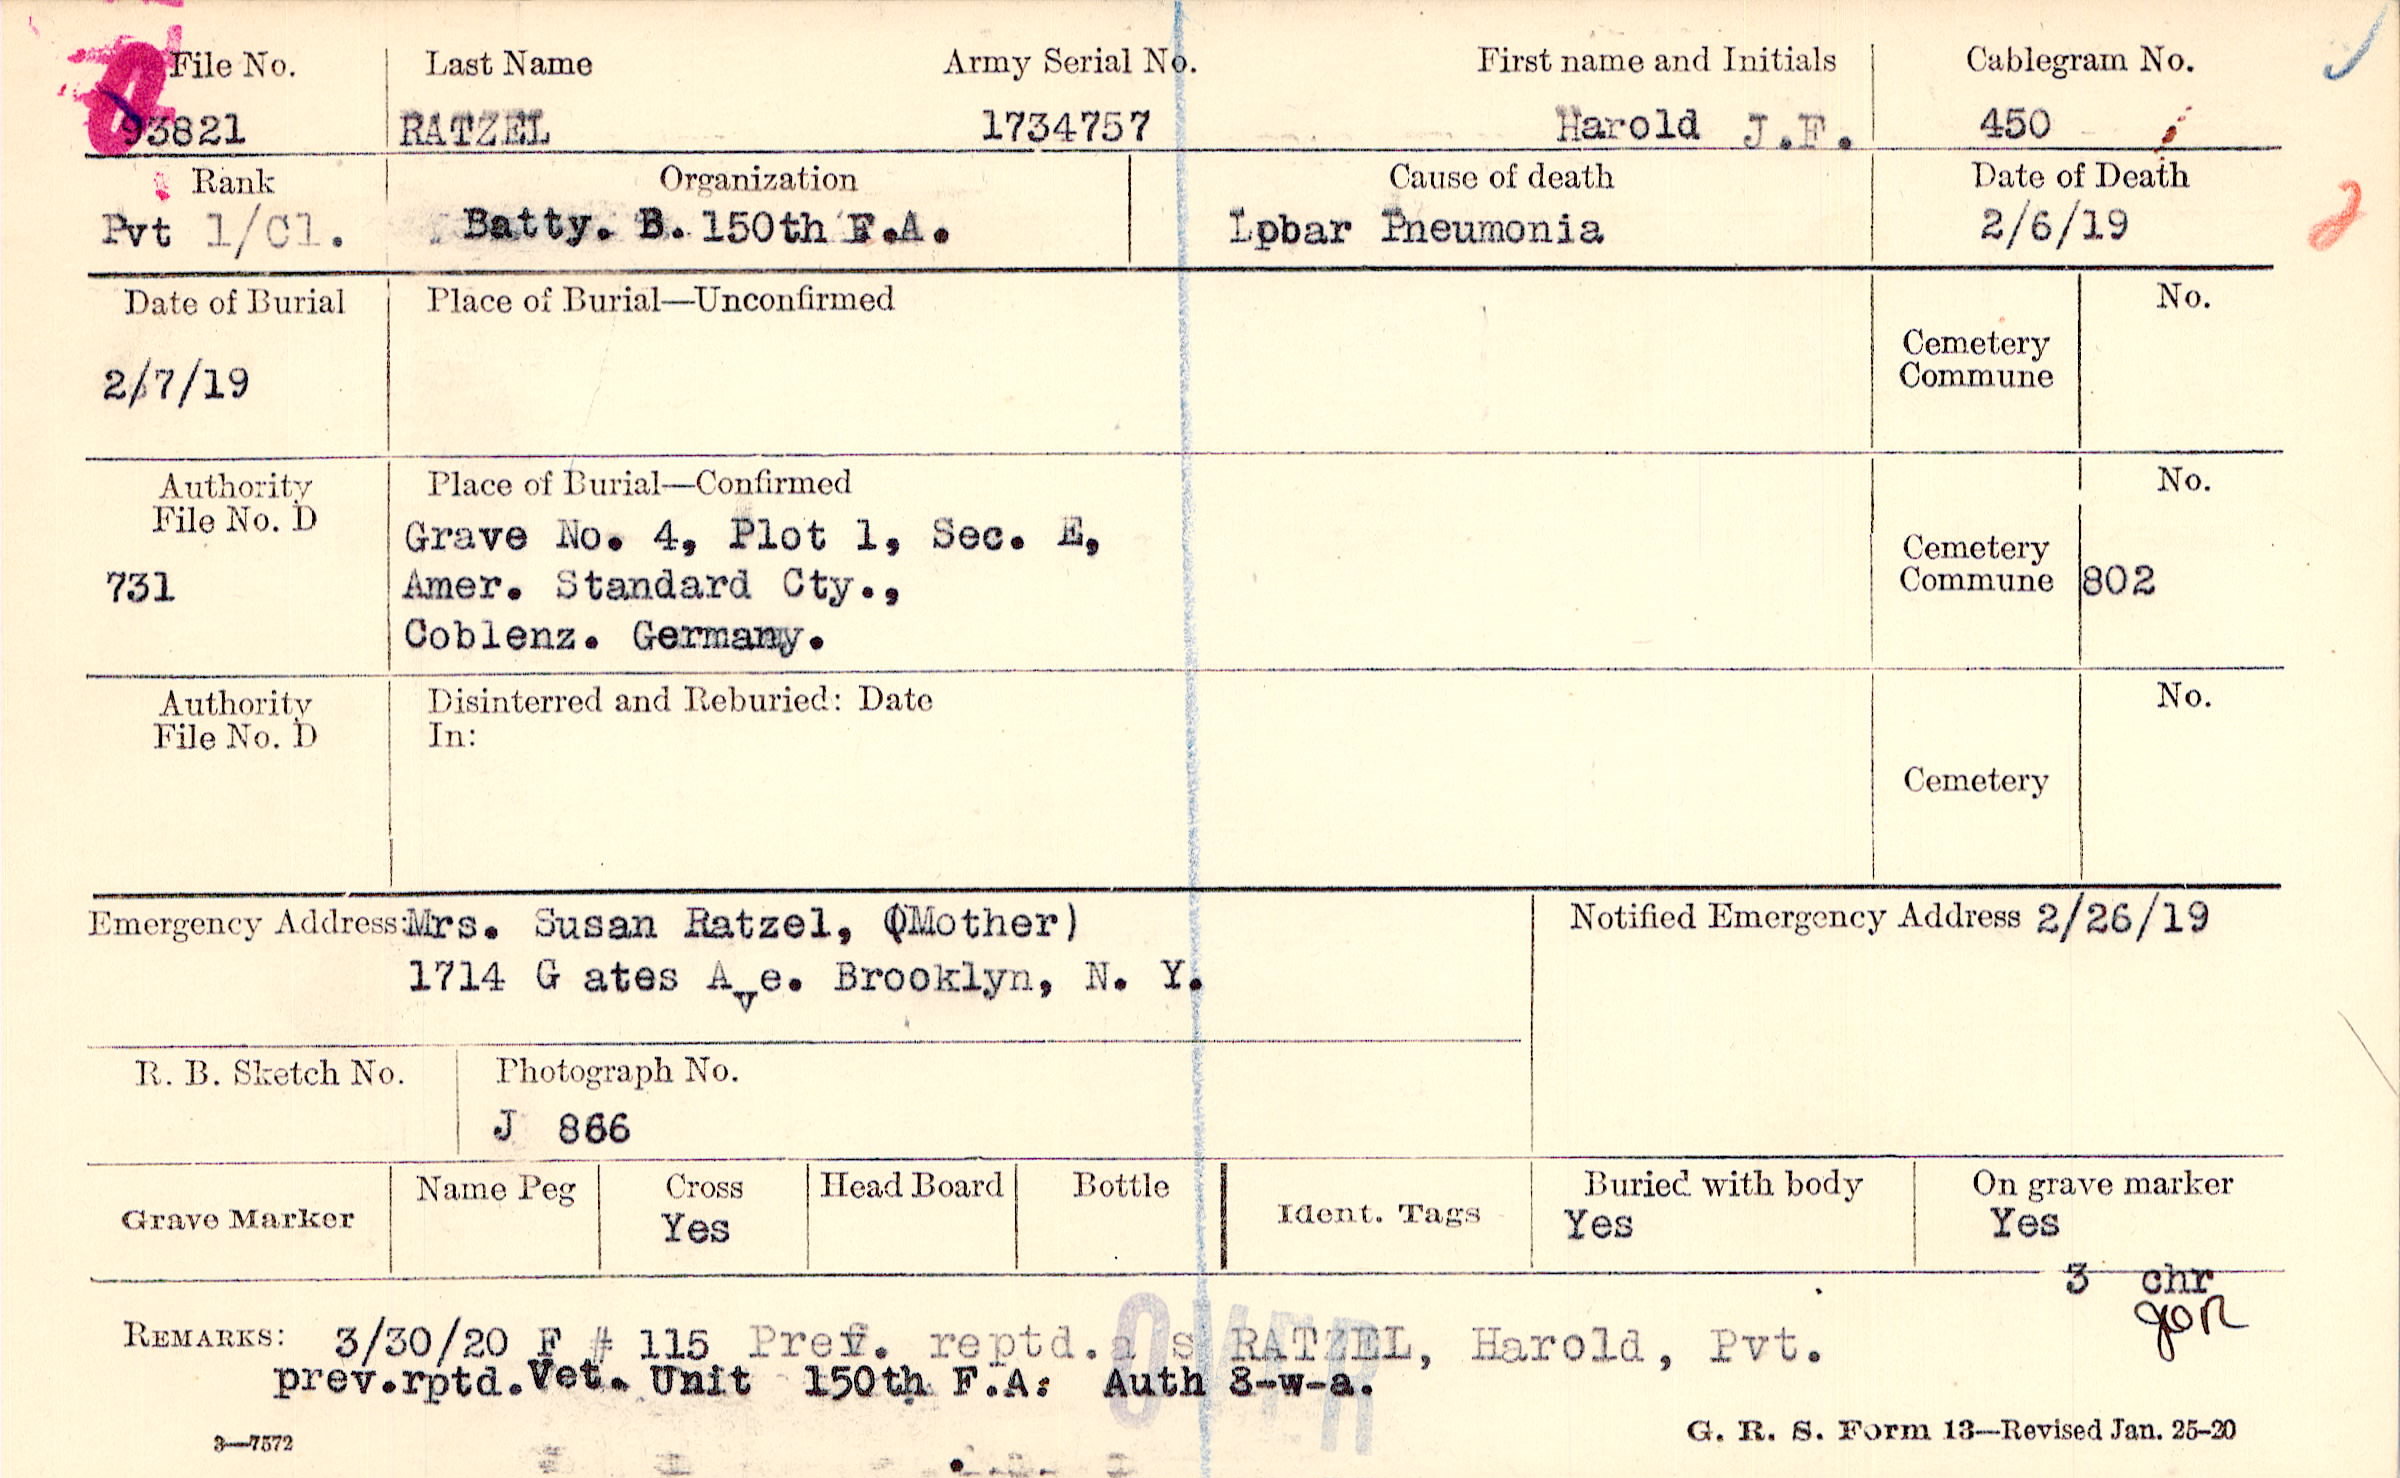 File No. Last Name Army Serial No. First name and Initials Cablegram No.
93821 RATZEL 1734757 Harold J.F. 450
Rank Organization Cause of death Date of Death
Pvt 1/Cl. Batty. B. 150th F.A. Lobar Pneumonia 2/6/19
Date of Burial Place of Burial—Unconfirmed No.
Cemetery
Commune
2/7/19
Authority Place of Burial—Confirmed No.
File No. D
Grave No. 4, Plot 1, Sec. E,
Cemetery
731 Amer. Standard Cty., Commune 802
Coblenz. Germany.
Authority Disinterred and Reburied: Date No.
File No. D In:
Cemetery
Emergency Address: Mrs. Susan Ratzel, (Mother) Notified Emergency Address 2/26/19
1714 G ates Ave. Brooklyn, N. Y.
R. B. Sketch No. Photograph No.
J 866
Name Peg Cross Head Board Bottle Buried with body On grave marker
Grave Marker Yes Ident. Tags Yes Yes
3 chr
REMARKS: 3/30/20 F # 115 Prev. reptd.a s RATZEL, Harold, Pvt.
prev.rptd.Vet. Unit 150th F.A: Auth 3-w-a.
OVER
3—7572 G. R. S. Form 13—Revised Jan. 25-20